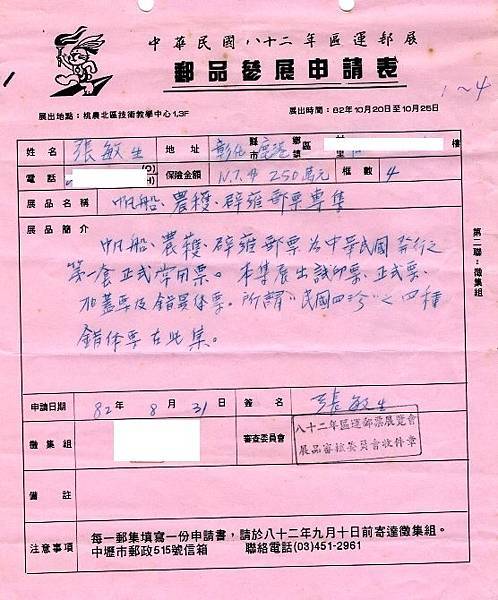 中華民國八十二年區運郵展
郵品參展申請表
1～4
展出地點：桃農北區技術教學中心1,3F
展出時間：82年10月20日至10月25日
姓名 張敏生 地址 彰化 縣市 鹿港 鄉鎮 區 村里 樓
電話 (O) (H) 保險金額 N.T.$ 250萬元 框數 4
展品名稱 帆船、農穫、辟雍郵票專集
展品簡介
帆船、農穫、辟雍郵票為中華民國發行之
第一套正式常用票。本集展出試印票、正式票、
加蓋票及錯變体票。所謂"民國四珍"之四種
錯体票在此集。
第二聯：徵集組
申請日期 82年 8月 31日 簽名 張敏生
徵集組
審查委員會
八十二年區運郵票展覽會
展品審核委員會收件章
備註
注意事項
每一郵集填寫一份申請書，請於八十二年九月十日前寄達徵集組。
中壢市郵政515號信箱 聯絡電話(03)451-2961